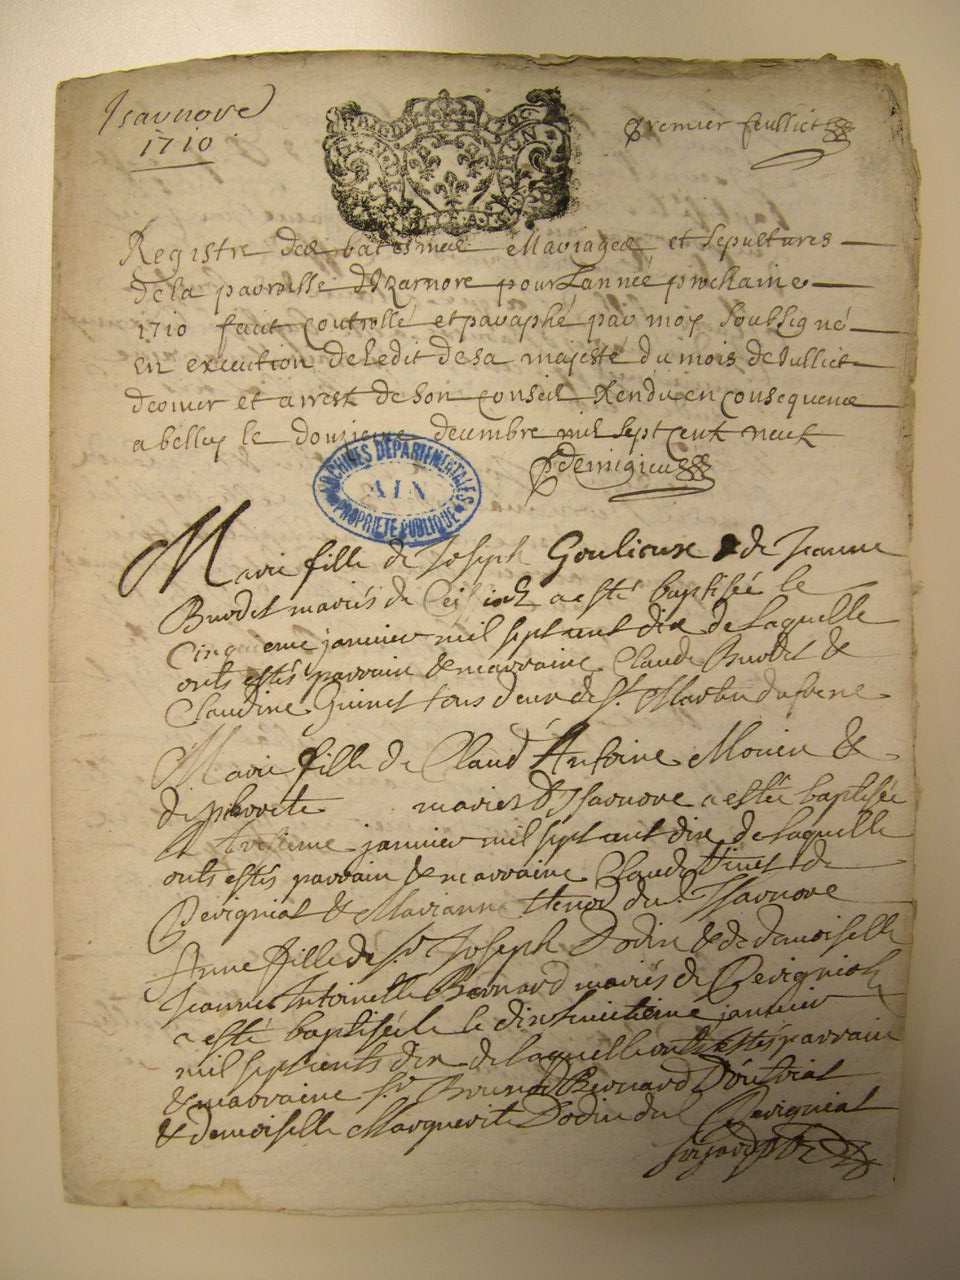 Isarnore
1710
Premier feulliet
Registre des batesmes Mariages et sepultures
de la parroisse d'Izarnore pour L'année prochaine
1710 faict controllé et paraphé par moy soubsigné
en execution de Ledit de sa majesté du mois de Julliet
dernier et arrest de son conseil Rendu en consequence
a belley le dousieme decembre mil sept cent neuf
Demigieu
ARCHIVES DÉPARTEMENTALES
AIN
PROPRIÉTÉ PUBLIQUE
Marie fille de Joseph Goulieux & de Jeanne
Burdet mariés de a esté baptisée le
Cinquieme janvier mil sept cent dix de Laquelle
onts estés parrain & marraine Claude Burdet &
Claudine Guinet tous deux de st. Martin du frene
Marie fille de Claud Antoine Monin &
de mariés d'Isarnore a estée baptisée
le janvier mil sept cent dix de Laquelle
onts estés parrain & marraine Claude de
Perigniat & Marianne du d. Isarnore
Anne fille de sr. Joseph Dodin & de demoiselle
Jeanne Antoinette Bernard mariés de Perigniat
a esté baptisée le dixhuitieme janvier
mil sept cents dix de laquelle onts estés parrain
& marraine sr. Bernard d'outriat
& demoiselle Marguerite Dodin dud. Perigniat